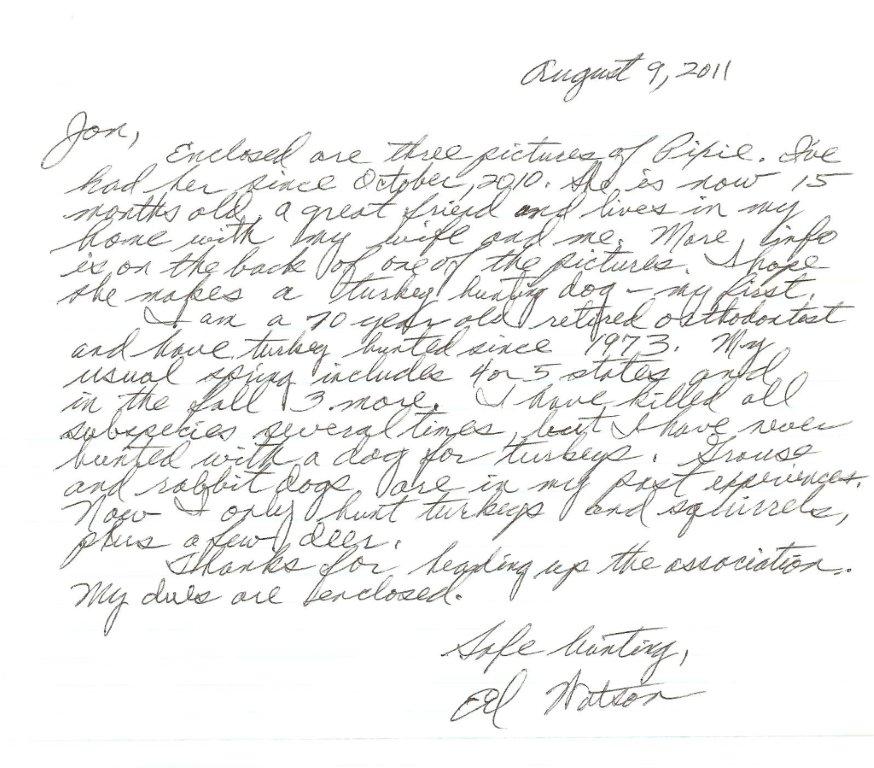 August 9, 2011
Jon,
Enclosed are three pictures of Pixie. I've
had her since October, 2010. She is now 15
months old, a great friend and lives in my
home with my wife and me. More info
is on the back of one of the pictures. I hope
she makes a turkey hunting dog – my first.
I am a 70 year old retired orthodontist
and have turkey hunted since 1973. My
usual spring includes 4 or 5 states and
in the fall 3 more. I have killed all
subspecies several times, but I have never
hunted with a dog for turkeys. Grouse
and rabbit dogs are in my past experiences.
Now I only hunt turkeys and squirrels,
plus a few deer.
Thanks for heading up the association.
My dues are enclosed.
Safe hunting,
Ed Watson